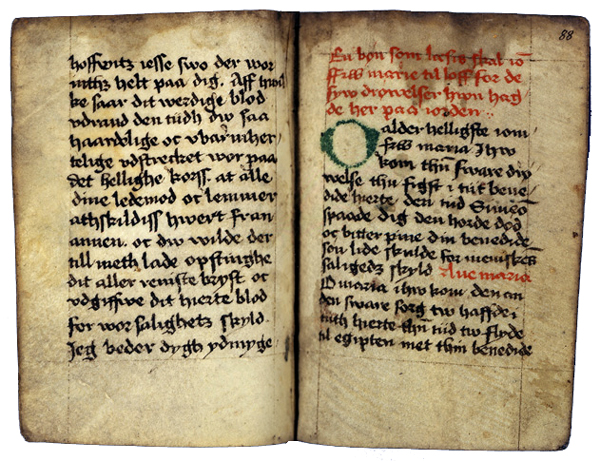 hoffwitz iesse swo der wor
nithz helt paa dig. Aff huil
ke saar dit werdige blod
vdrand den tiidh dw saa
haardelige oc vbarmher
telige vdstrecket wor paa
det hellighe korss. at alle
dine ledemod oc lemmer
athskildiss hwert fran
annen. oc dw wilde der
till meth lade opstinghe
dit aller reniste bryst oc
vdgiffwe dit hierte blod
for wor salighetz skyld.
Jeg beder dygh ydmyge
88
En bøn som læses skal io
ffrw marie til loff for de
syw drøwelser hwn hag
de her paa iorden
O alder helligste iom
frw maria Ihw
kom thn̄ sware drø
welse thu figst i tit bene
dide hierte den tid Simeō
spaade dig den horde død
oc bitter pine din benedide
søn lide skulde for menīskēs
saligedz skyld Aue maria
O maria ihw kom den an
den sware sorg tw haffde i
tith hierte thn̄ tiid tw flyde
til egipten met thin benedide